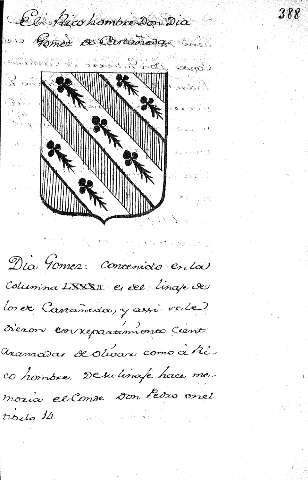 388
El Rico hombre Don Dia
Gomez de Castañeda
Dia Gomez: contenido en la
Columna LXXXII es del linaje de
los de Castañeda, y assi se le
dieron en repartimiento cient
aranzadas de olivar como à Ri-
co hombre. De su linaje hace me-
moria el Conde Don Pedro en el
titulo 14